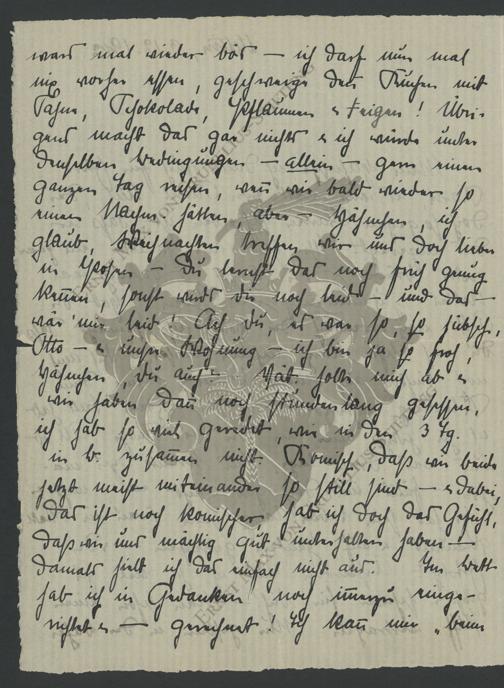 ward mal wieder bös — ich darf nun mal
nix vorher essen, geschweige denn Kuchen mit
Sahne, Schokolade, Pflaumen & Feigen! Übri-
gens macht das gar nichts & ich würde unter
denselben Bedingungen — allein — gern einen
ganzen Tag reisen, weñ wir bald wieder so
einen Nachm. hätten, aber — Hähnchen, ich
glaub, Weihnachten treffen wir uns doch lieber
in Posen — Du lernst das noch früh genug
keñen, sonst wirds dir noch leid — und das —
wär' mir leid! Ach du, es war so, so hübsch,
Otto — & unsre Wohnung — ich bin ja so froh,
Hähnchen, du auch? — Vat. holte mich ab &
wir haben dañ noch stundenlang gesessen,
ich hab so viel geredet, wie in den 3 Tg.
in B. zusam̃en nicht. Komisch, daß wir beide
jetzt meist miteinander so still sind — & dabei,
das ist noch komischer, hab ich doch das Gefühl,
daß wir uns mächtig gut unterhalten haben —
damals hielt ich das einfach nicht aus. Im Bett
hab ich in Gedanken noch im̃erzu einge-
richtet & — gerechnet! Ich kañ mir „beim